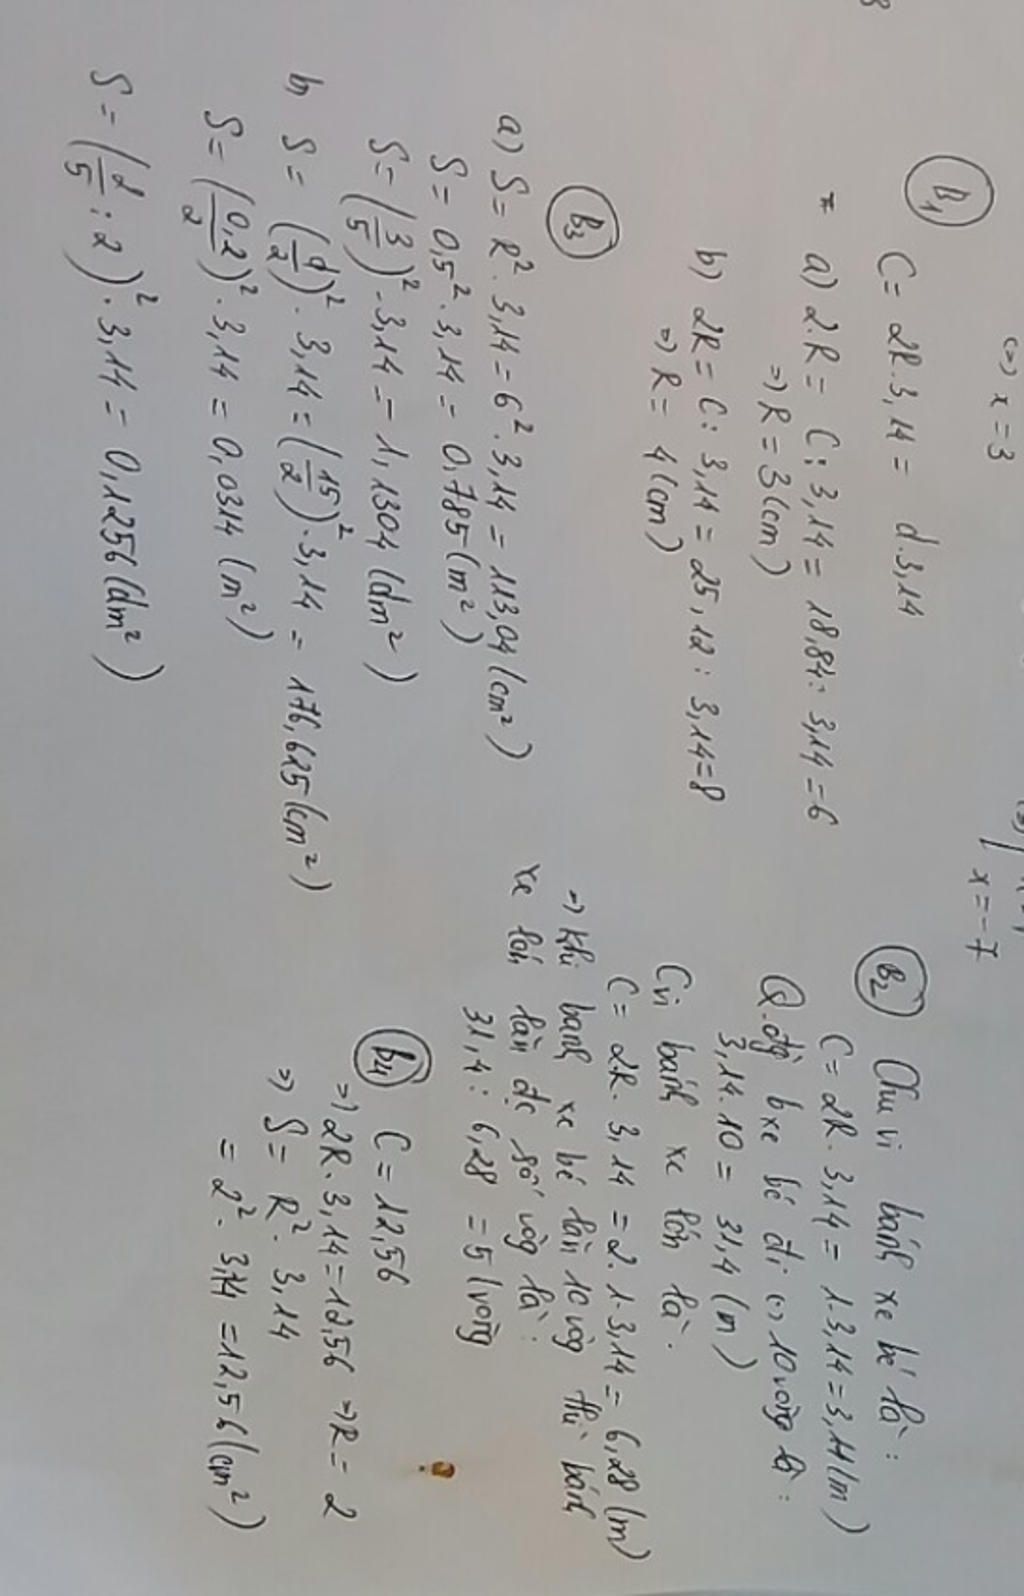 <=> x = 3
x = -7
B1
C = 2R . 3,14 = d . 3,14
* a) 2.R = C : 3,14 = 18,84 : 3,14 = 6
=> R = 3 (cm)
b) 2R = C : 3,14 = 25,12 : 3,14 = 8
=> R = 4 (cm)
B3
a) S = R² . 3,14 = 6² . 3,14 = 113,04 (cm²)
S = 0,5² . 3,14 = 0,785 (m²)
S = (3/5)² . 3,14 = 1,1304 (dm²)
b) S = (d/2)² . 3,14 = (15/2)² . 3,14 = 176,625 (cm²)
S = (0,2/2)² . 3,14 = 0,0314 (m²)
S = (2/5 : 2)² . 3,14 = 0,1256 (dm²)
B2 Chu vi bánh xe bé là :
C = 2R . 3,14 = 1.3,14 = 3,14 (m)
Q.đg bxe bé đi <=> 10 vòng là :
3,14.10 = 31,4 (m)
Cvi bánh xe lớn là .
C = 2R . 3,14 = 2.1.3,14 = 6,28 (m)
=> Khi bánh xe bé lăn 10 vòg thì bánh
xe lớn lăn đc số vòg là :
31,4 : 6,28 = 5 (vòng
B4 C = 12,56
=> 2R . 3,14 = 12,56 => R = 2
=> S = R² . 3,14
= 2² . 3,14 = 12,56 (cm²)